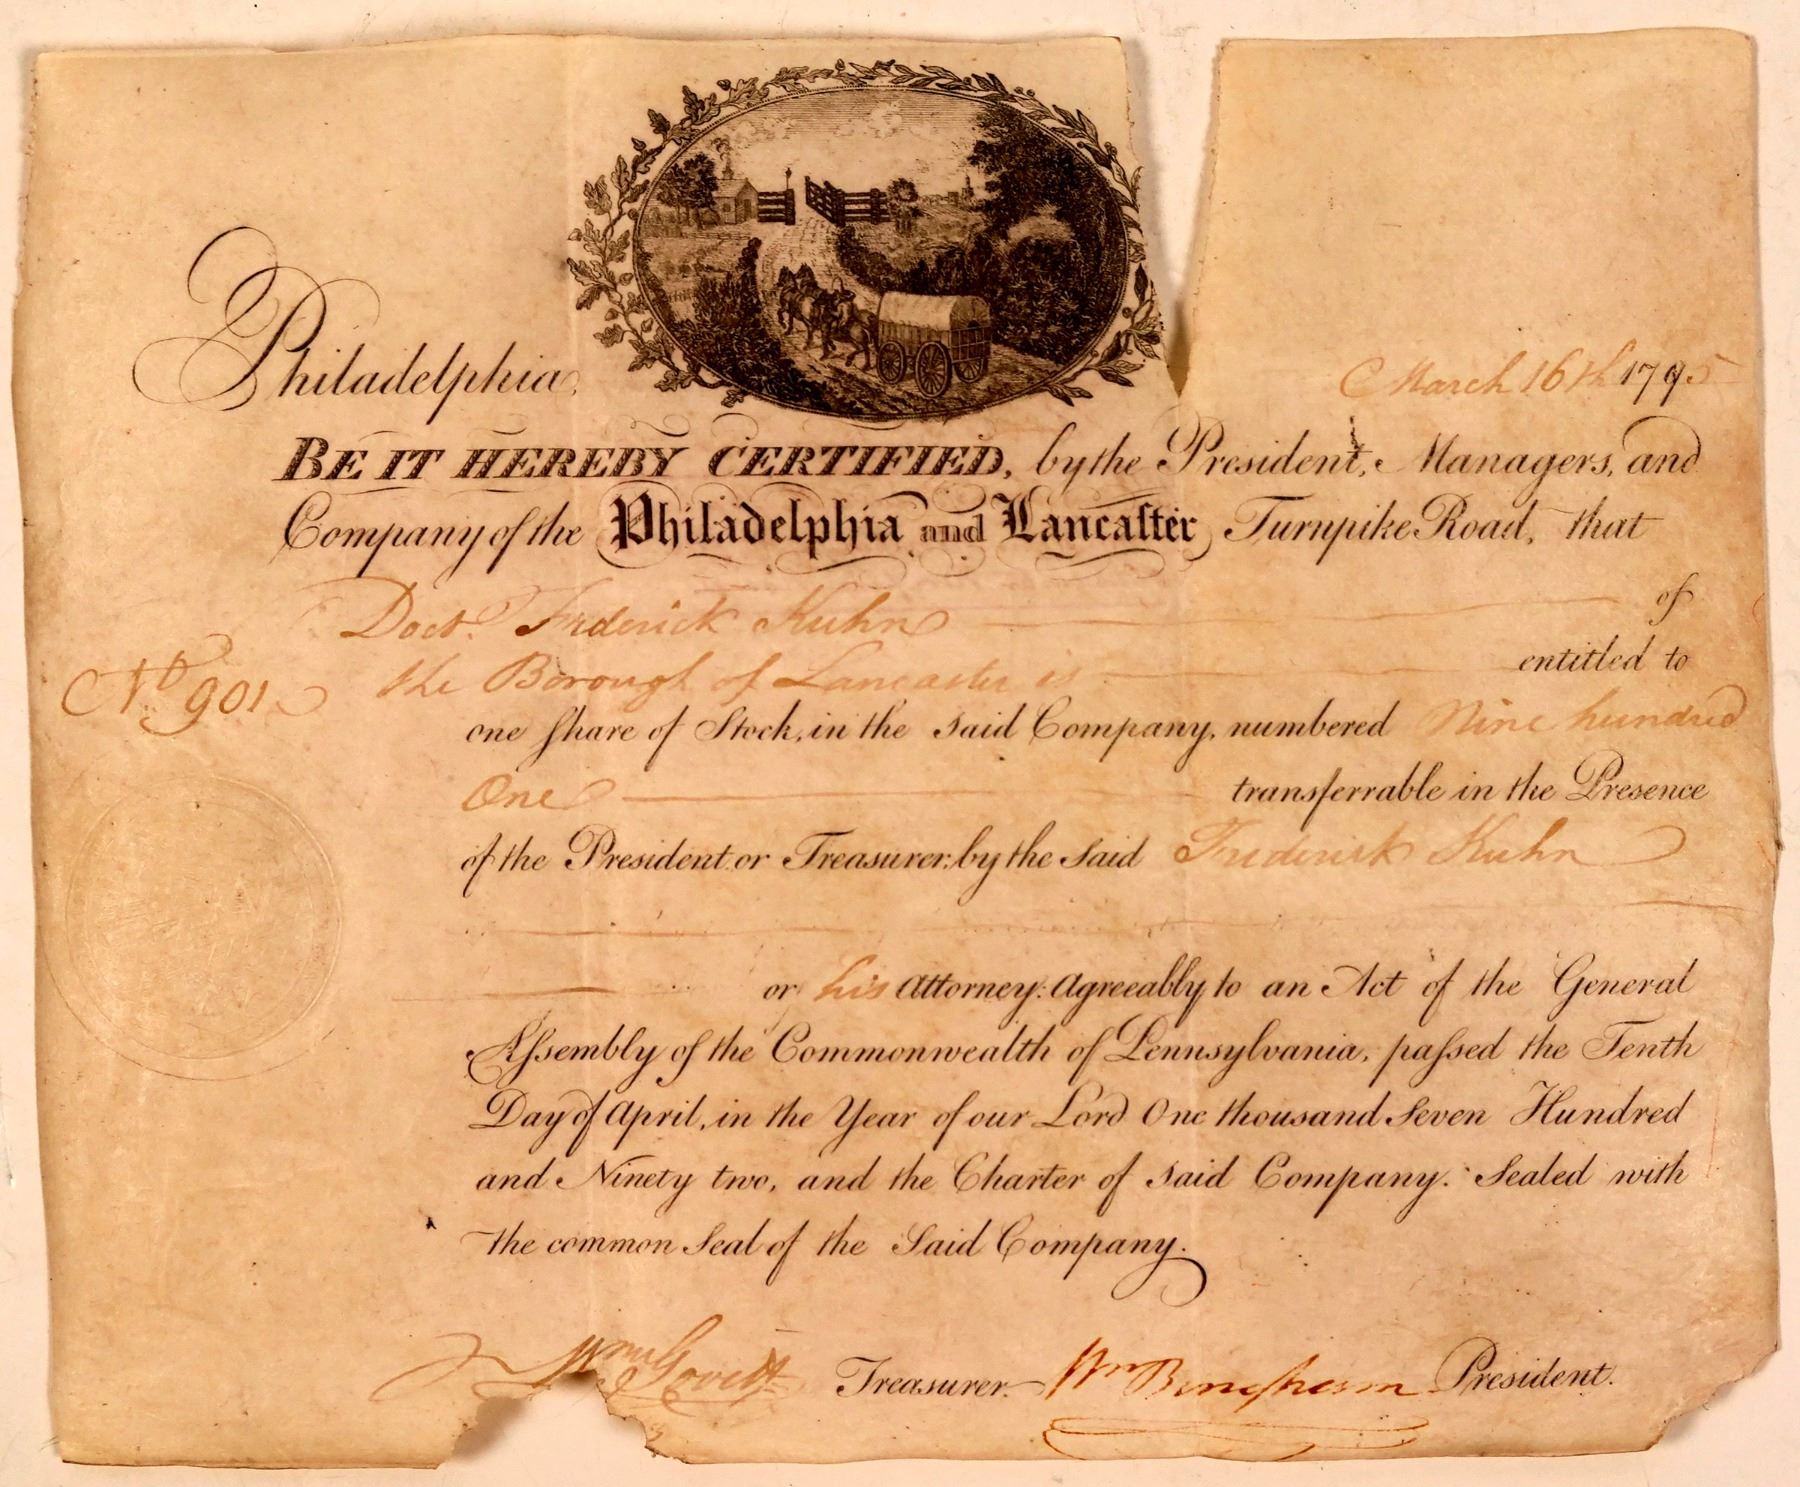 Philadelphia, March 16th 1795
BE IT HEREBY CERTIFIED, by the President, Managers, and
Company of the Philadelphia and Lancaster Turnpike Road, that
Doct. Frederick Kuhn of
the Borough of Lancaster is entitled to
No 901
one Share of Stock, in the said Company, numbered Nine hundred
One transferrable in the Presence
of the President or Treasurer, by the said Frederick Kuhn
or his Attorney: Agreeably to an Act of the General
Assembly of the Commonwealth of Pennsylvania, passed the Tenth
Day of April, in the Year of our Lord One thousand Seven Hundred
and Ninety two, and the Charter of said Company. Sealed with
the common Seal of the Said Company.
Wm Govett Treasurer. Wm Bingham President.